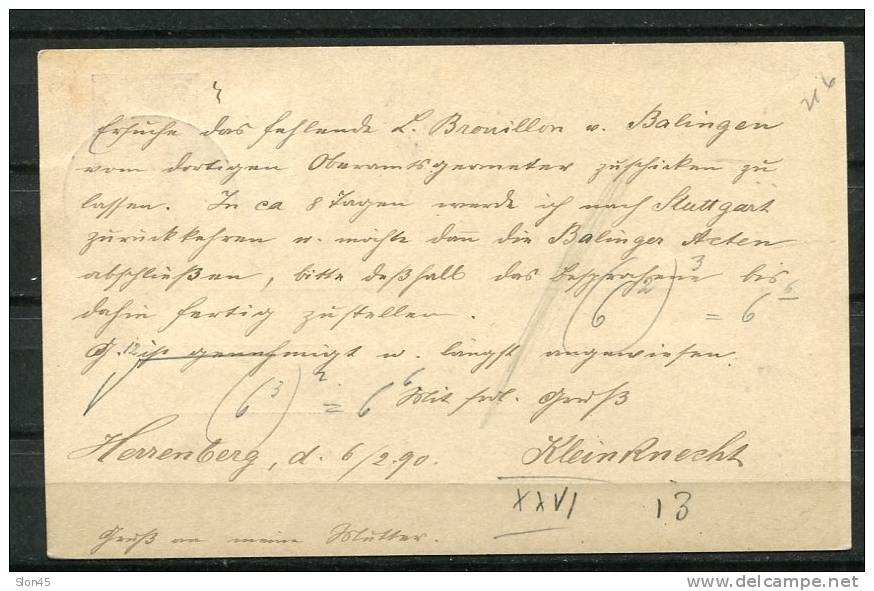 216
Ersuche das fehlende L. Brouillon v. Balingen
vom dortigen Oberamtsgeometer zuschicken zu
lassen. In ca 8 Tagen werde ich nach Stuttgart
zurückkehren u. möchte dann die Balinger Acten
abschließen, bitte deßhalb das besprochene bis
dahin fertig zu stellen.
(6²)³ = 6⁶
G. 12 ist genehmigt u. längst angewiesen.
(6³)² = 6⁶
Mit frdl. Gruß
Herrenberg, d. 6/2.90. Kleinknecht
XXVI 13
Gruß an meine Mutter.
Slon45
delcampe.net